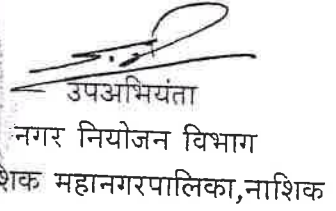 उपअभियंता
नगर नियोजन विभाग
शिक महानगरपालिका,नाशिक